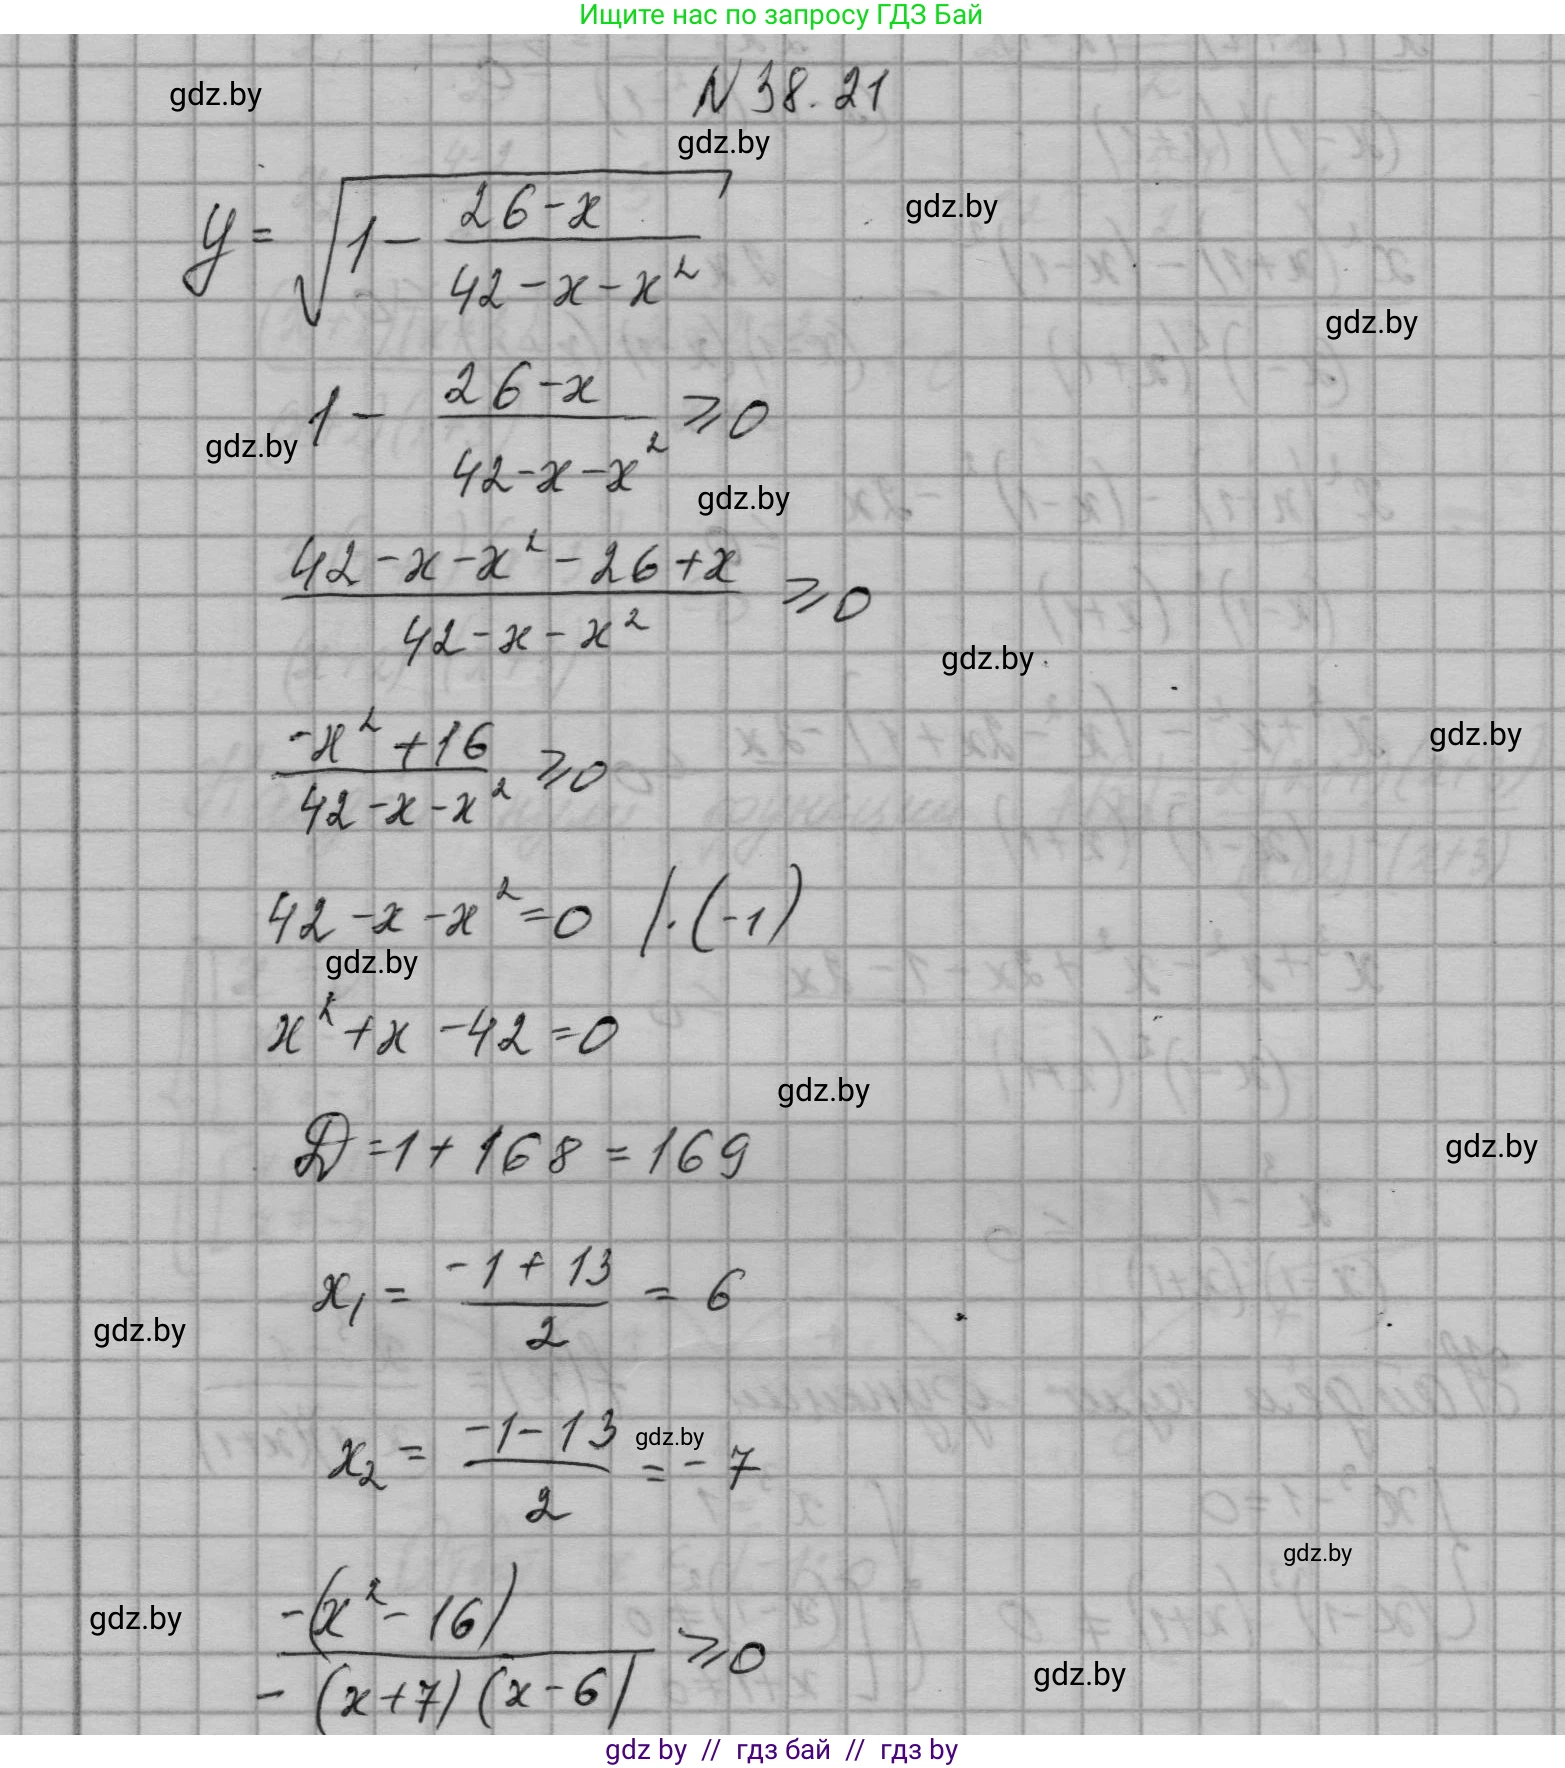 Ищите нас по запросу ГДЗ Бай
gdz.by
N 38.21
gdz.by
gdz.by
y = √(1 - (26 - x)/(42 - x - x²))
gdz.by
1 - (26 - x)/(42 - x - x²) ⩾ 0
gdz.by
gdz.by
(42 - x - x² - 26 + x)/(42 - x - x²) ⩾ 0
gdz.by
gdz.by
(-x² + 16)/(42 - x - x²) ⩾ 0
42 - x - x² = 0 /·(-1)
gdz.by
x² + x - 42 = 0
gdz.by
D = 1 + 168 = 169
gdz.by
x₁ = (-1 + 13)/2 = 6
gdz.by
x₂ = (-1 - 13)/2 = -7
gdz.by
gdz.by
gdz.by
-(x² - 16)/(-(x + 7)(x - 6)) ⩾ 0
gdz.by
gdz by // гдз бай // гдз by